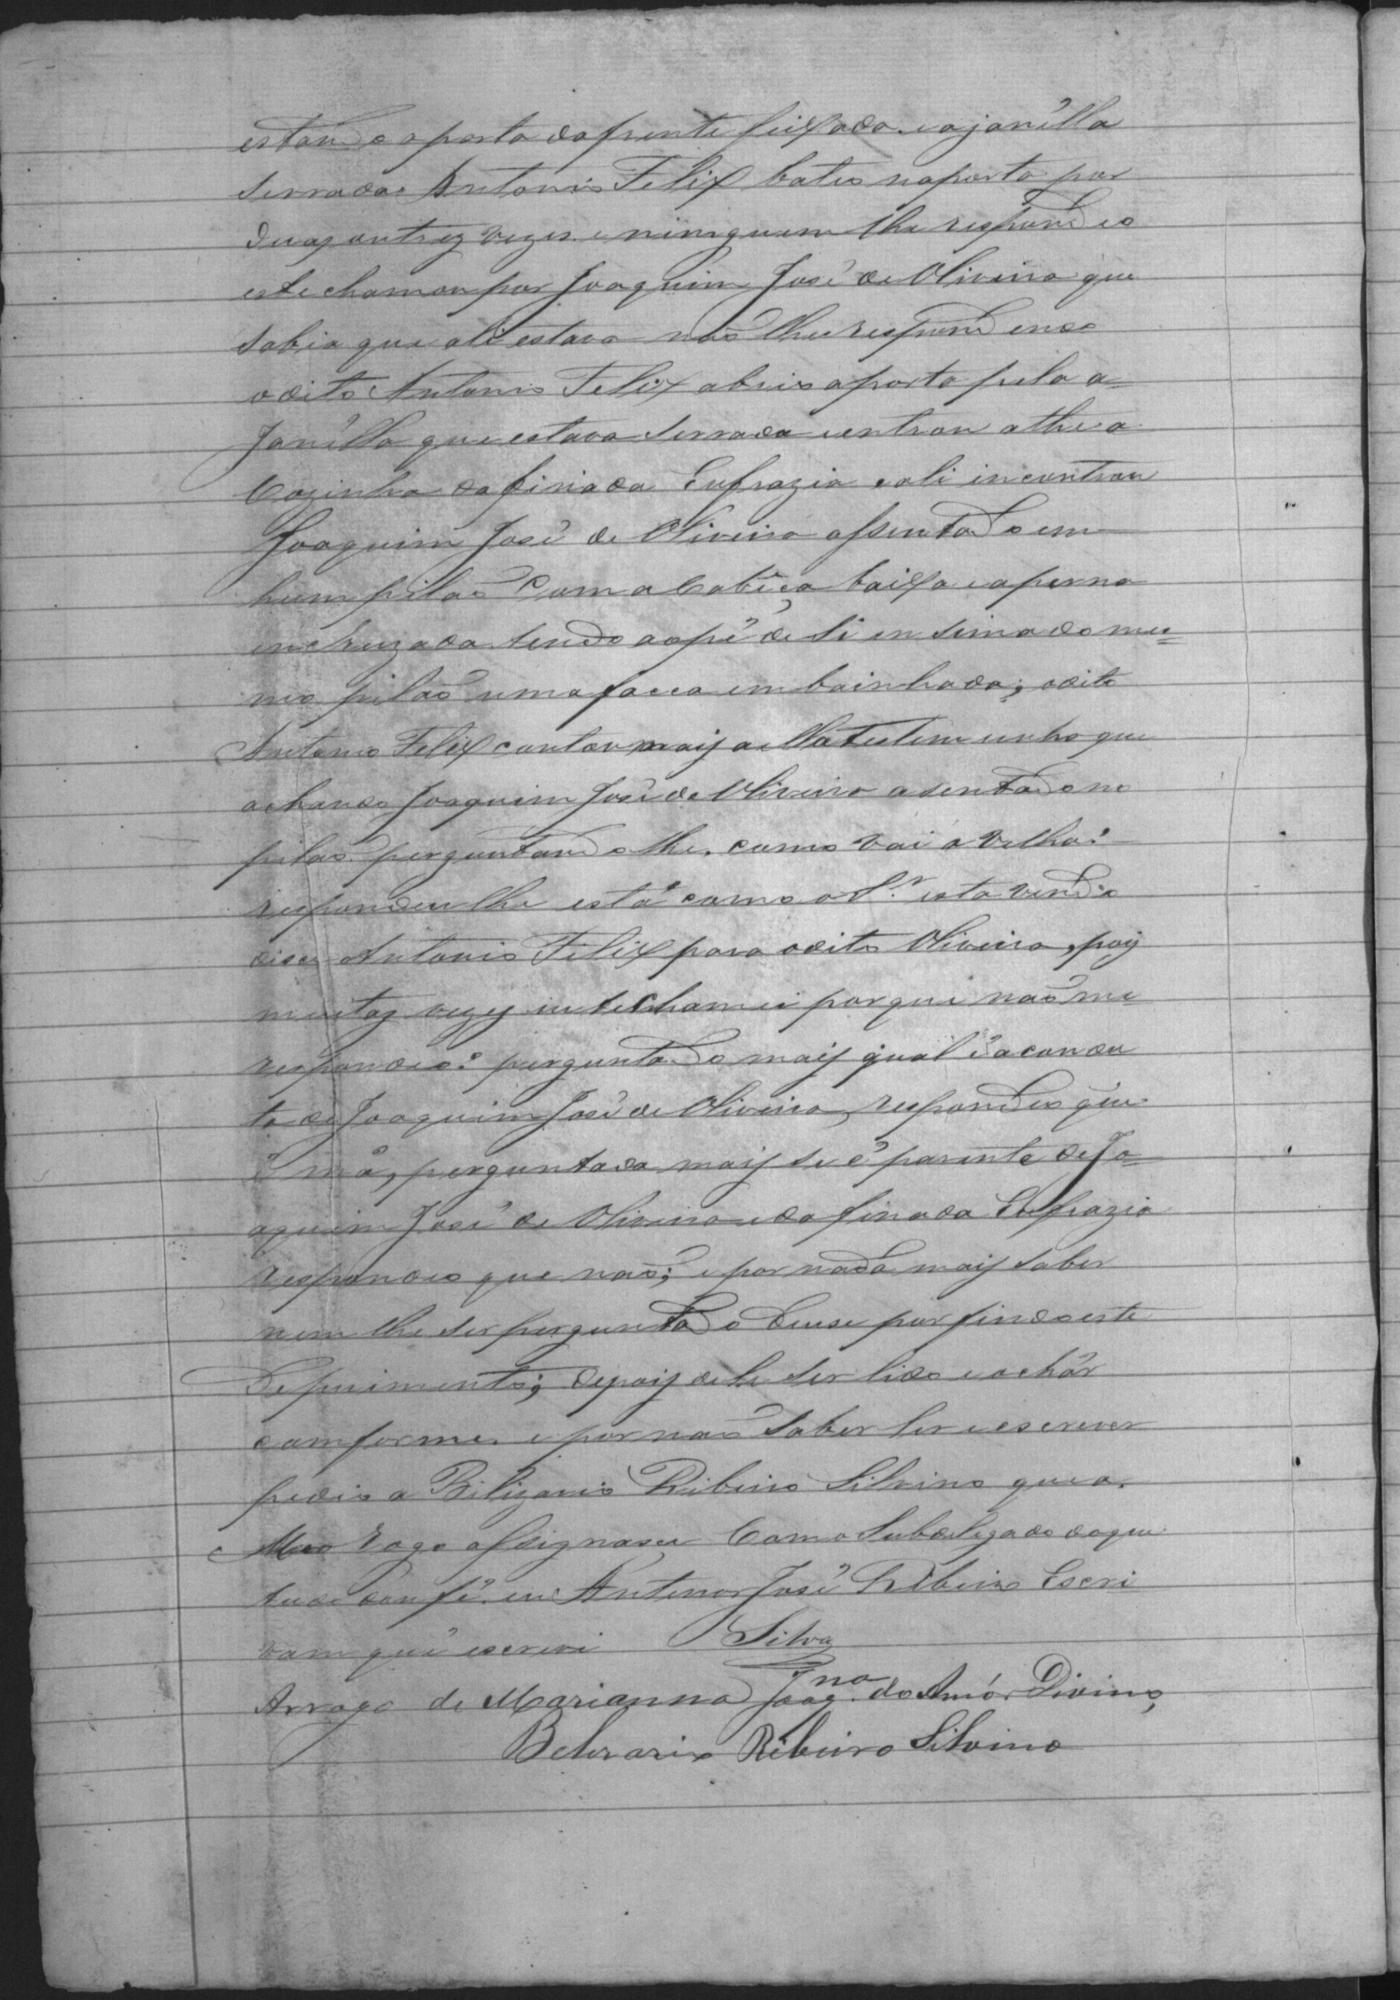 estando aporta dafrente feixada. eajanélla
serrada Antonio Felix bateo naporta por
duas outrez vezes. e nimguem lhe respondeo
este chamou por Joaquim José de Oliveira que
sabia que ali estava não lhe respondendo
odito Antonio Felix abrio aporta pela a=
Janélla que estava serrada eentrou athe a
Cozinha dafinada Eufrazia eali incontrou
Joaquim José de Oliveira assentado em
hum pilão Com a Cabêça baixa eaperna
encruzada tendo aopé de si en sima do mes=
mo pilão uma facca embainhada; odito
Antonio Felix contou mais aella testemunha que
achando Joaquim José de Oliveira asentado no
pilão perguntando lhe. como vai a velha?
respondeu lhe está como o Sr. esta vendo
dice Antonio Felix para odito Oliveira, pois
muitas vezes eu te chamei porque não me
respondeo? perguntado mais qual é acondu
ta de Joaquim José de Oliveira, respondeo que
é má, perguntada mais se é parente de Jo=
aquim José de Oliveira eda finada Eufrazia
respondeo que não; e por nada mais saber
nem lhe ser perguntado deuse por findo este
Depuimento; depois de lhe ser lido e achár
comforme. e por não saber ler e escrever
pedio a Bilizario Ribeiro Silvino que a.
Meo rogo assignasse Como Subdelegado doque
tudo dou fé. eu Antenor José Ribeiro Escri
vam que escrevi Silva
Arrogo de Marianna Joaqna. do Amôr Divino,
Belizario Ribeiro Silvino